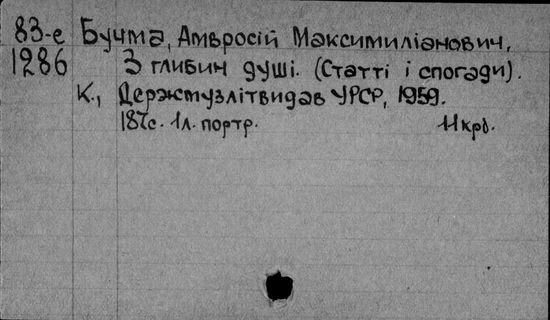 83-е Бучма, Амвросій Максимиліанович,
1286 З глибин душі. (Статті і спогади).
К., Держмузлітвидав УРСР, 1959.
187с. 1л. портр. 11крб.